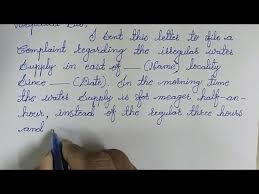 I sent this letter to file a
Complaint regarding the irregular water
Supply in east of — (Name) locality
Since — (Date). In the morning time
the water supply is for meager half-an-
hour, instead of the regular three hours
and